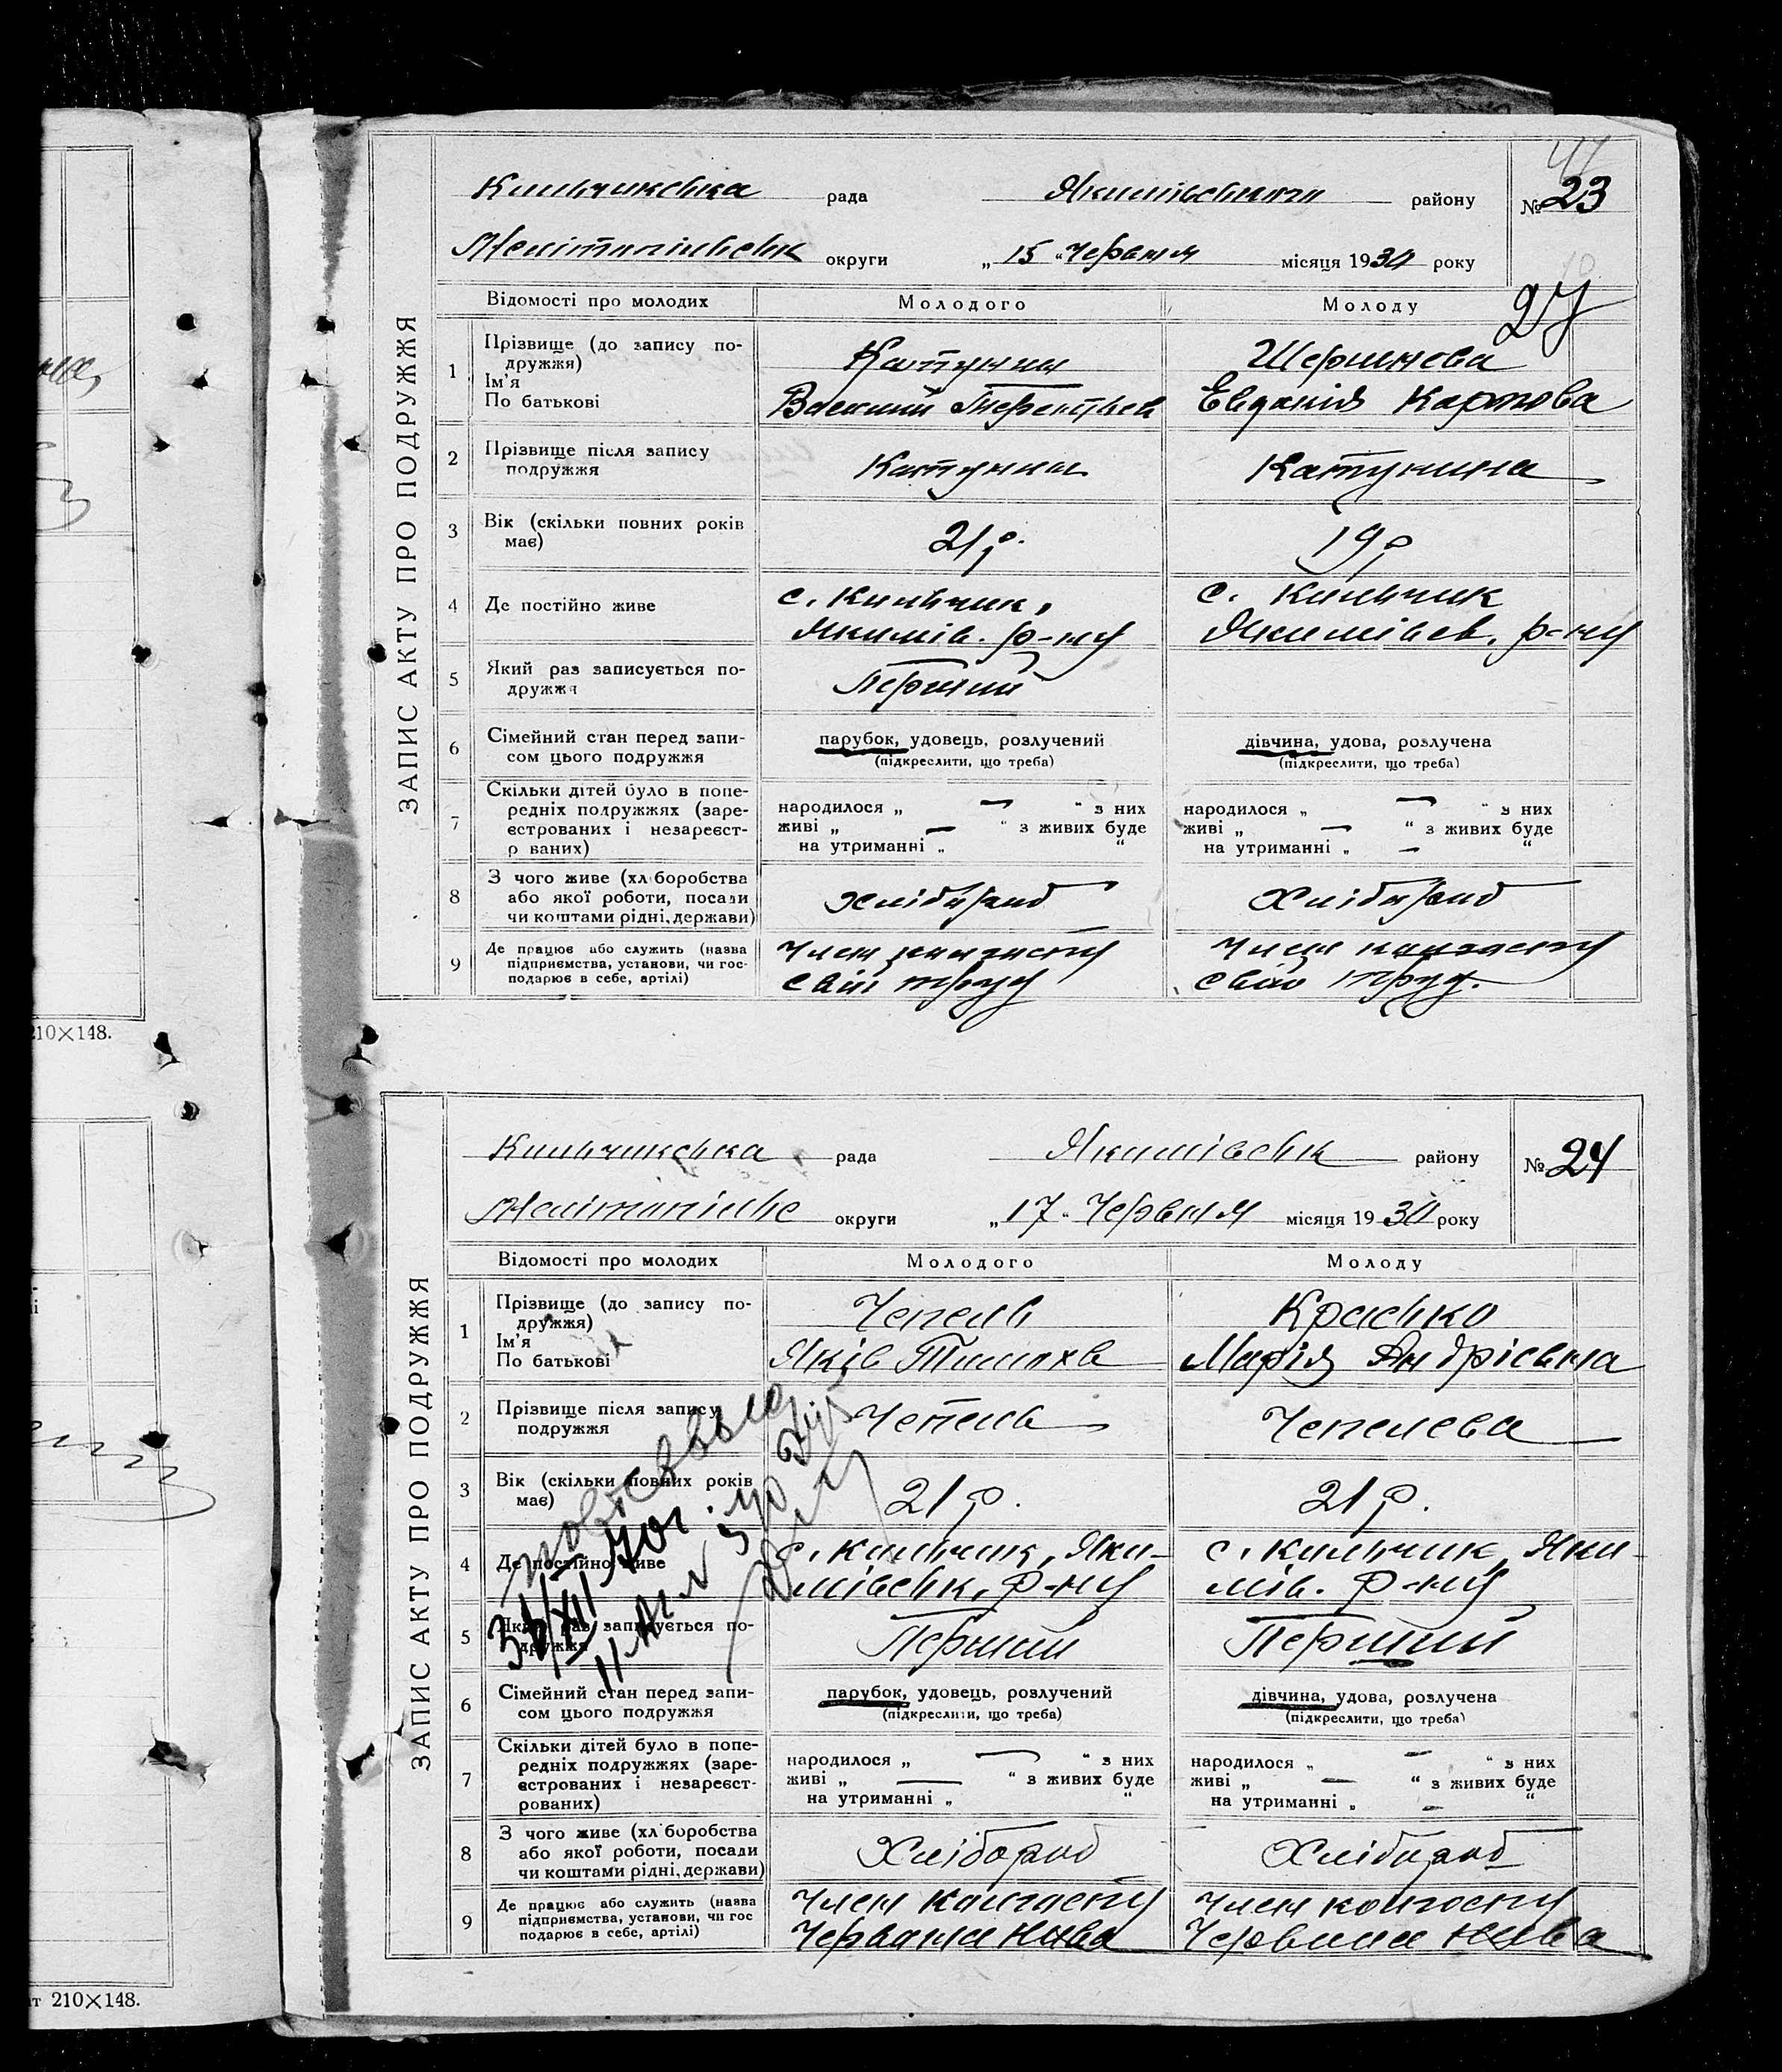 ЗАПИС АКТУ ПРО ПОДРУЖЖЯ
Кильчикська рада Якимівського району №23
Мелітопільськ округи „15“ Червня місяця 1930 року
27
Відомості про молодих Молодого Молоду
1 Прізвище (до запису по-
дружжя)
Ім'я
По батькові
Катунин
Василий Терентьев
Шершнева
Евдокія Карпова
2 Прізвище після запису
подружжя
Катунин
Катунина
3 Вік (скільки повних років
має)
21 р.
19 р
4 Де постійно живе
с. Кильчик,
Якимів. р-ну
с. Кильчик
Якимівсв. р-ну
5 Який раз записується по-
дружжя
Перший
6 Сімейний стан перед запи-
сом цього подружжя
парубок, удовець, розлучений
(підкреслити, що треба)
дівчина, удова, розлучена
(підкреслити, що треба)
7 Скільки дітей було в попе-
редніх подружжях (заре-
єстрованих і незареєст-
р ваних)
народилося „ — “ з них
живі „ — “ з живих буде
на утриманні „ “
народилося „ — “ з них
живі „ — “ з живих буде
на утриманні „ — “
8 З чого живе (хл боробства
або якої роботи, посади
чи коштами рідні, держави)
хлібороб
Хлібороб
9 Де працює або служить (назва
підприємства, установи, чи гос-
подарює в себе, артілі)
Член колгоспу
Свій труд
Член колгоспу
Свій труд.
210×148.
ЗАПИС АКТУ ПРО ПОДРУЖЖЯ
Кильчикська рада Якимівськ району №24
Мелітопільс округи „17“ Червня місяця 1930 року
Відомості про молодих Молодого Молоду
1 Прізвище (до запису по-
дружжя)
Ім'я
По батькові
Чепель
Яків Тимохв
Красько
Марія Андрієвна
2 Прізвище після запису
подружжя
Чепель
Чепелева
3 Вік (скільки повних років
має)
21 р.
21 р.
4 Де постійно живе
с. Кильчик, Яки-
мівськ, р-ну
с. Кильчик, Яки-
мів. р-ну
5 Який раз записується по-
дружжя
Перший
Перший
6 Сімейний стан перед запи-
сом цього подружжя
парубок, удовець, розлучений
(підкреслити, що треба)
дівчина, удова, розлучена
(підкреслити, що треба)
7 Скільки дітей було в попе-
редніх подружжях (заре-
єстрованих і незареєст-
рованих)
народилося „ — “ з них
живі „ — “ з живих буде
на утриманні „ “
народилося „ — “ з них
живі „ — “ з живих буде
на утриманні „ — “
8 З чого живе (хл боробства
або якої роботи, посади
чи коштами рідні, держави)
Хлібороб
Хлібороб
9 Де працює або служить (назва
підприємства, установи, чи гос
подарює в себе, артілі)
Член колгоспу
Червона Нива
Член колгоспу
Червона Нива
210×148.